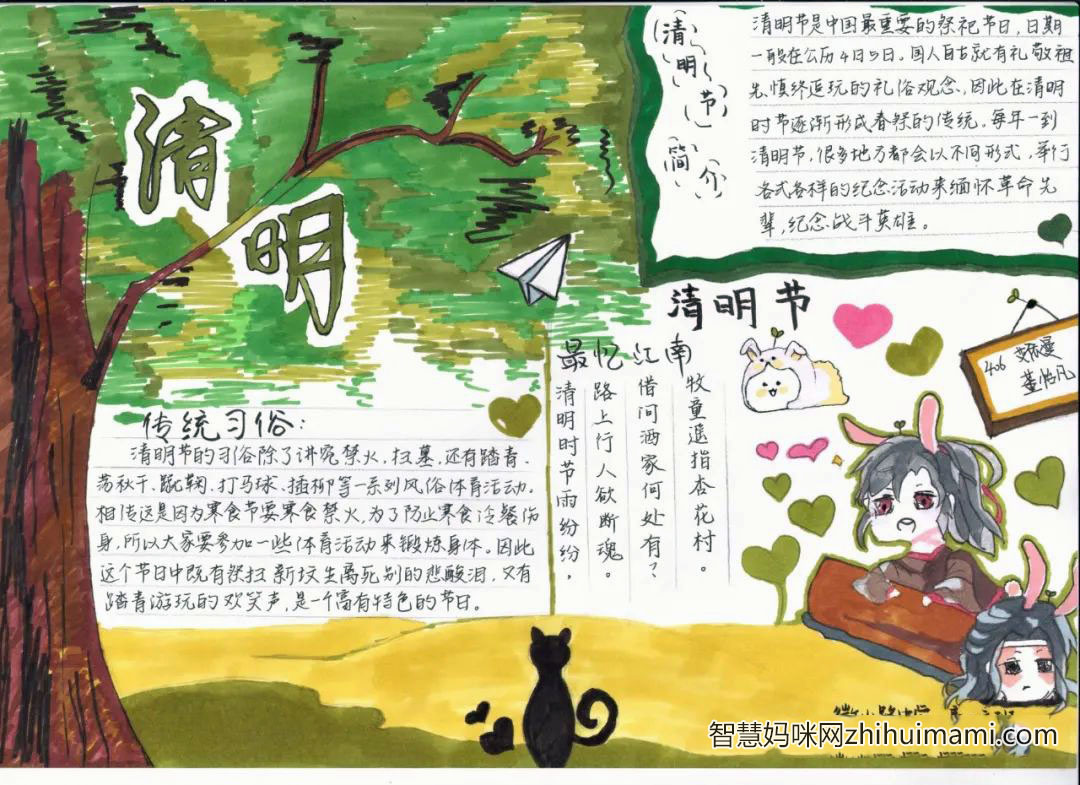 清明
清明节简介
清明节是中国最重要的祭祀节日,日期
一般在公历4月5日。国人自古就有礼敬祖
先,慎终追玩的礼俗观念,因此在清明
时节逐渐形成春祭的传统。每年一到
清明节,很多地方都会以不同形式,举行
各式各样的纪念活动来缅怀革命先
辈,纪念战斗英雄。
清明节
最忆江南
清明时节雨纷纷,
路上行人欲断魂。
借问酒家何处有?
牧童遥指杏花村。
406
传统习俗:
清明节的习俗除了讲究禁火,扫墓,还有踏青、
荡秋千、蹴鞠、打马球、插柳等一系列风俗体育活动。
相传这是因为寒食节要寒食禁火,为了防止寒食冷餐伤
身,所以大家要参加一些体育活动来锻炼身体。因此
这个节日中既有祭扫新坟生离死别的悲酸泪,又有
踏青游玩的欢笑声,是一个富有特色的节日。
智慧妈咪网zhihuimami.com